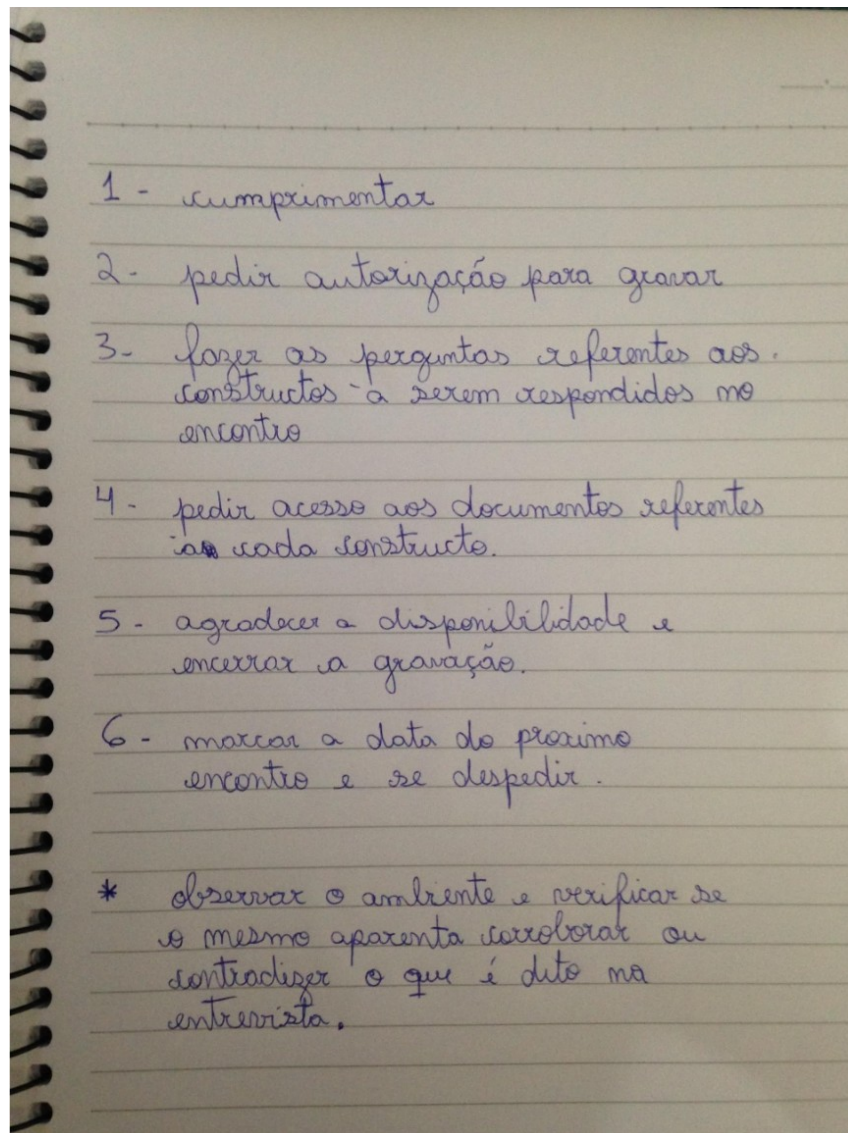 1 - cumprimentar
2 - pedir autorização para gravar
3 - fazer as perguntas referentes aos
constructos a serem respondidos no
encontro
4 - pedir acesso aos documentos referentes
a cada constructo.
5 - agradecer a disponibilidade e
encerrar a gravação.
6 - marcar a data do proximo
encontro e se despedir.
* observar o ambiente e verificar se
o mesmo aparenta corroborar ou
contradizer o que é dito na
entrevista.